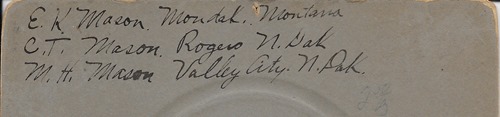 E. K. Mason. Mondak. Montana
C. T. Mason. Rogers N. Dak
M. H. Mason Valley City. N. Dak.